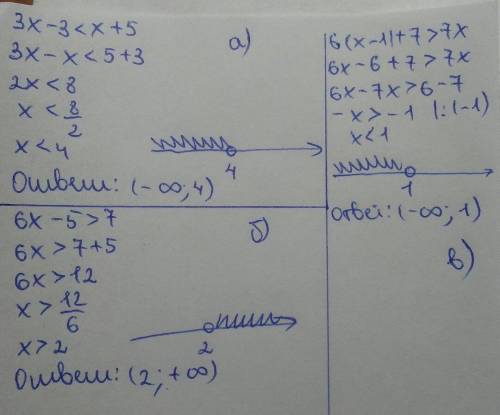 а)
3x-3<x+5
3x-x<5+3
2x<8
x<8/2
x<4
4
Ответ: (-∞; 4)
б)
6x-5>7
6x>7+5
6x>12
x>12/6
x>2
2
Ответ: (2; +∞)
6(x-1)+7>7x
6x-6+7>7x
6x-7x>6-7
-x>-1 |:(-1)
x<1
1
Ответ: (-∞; 1)
в)